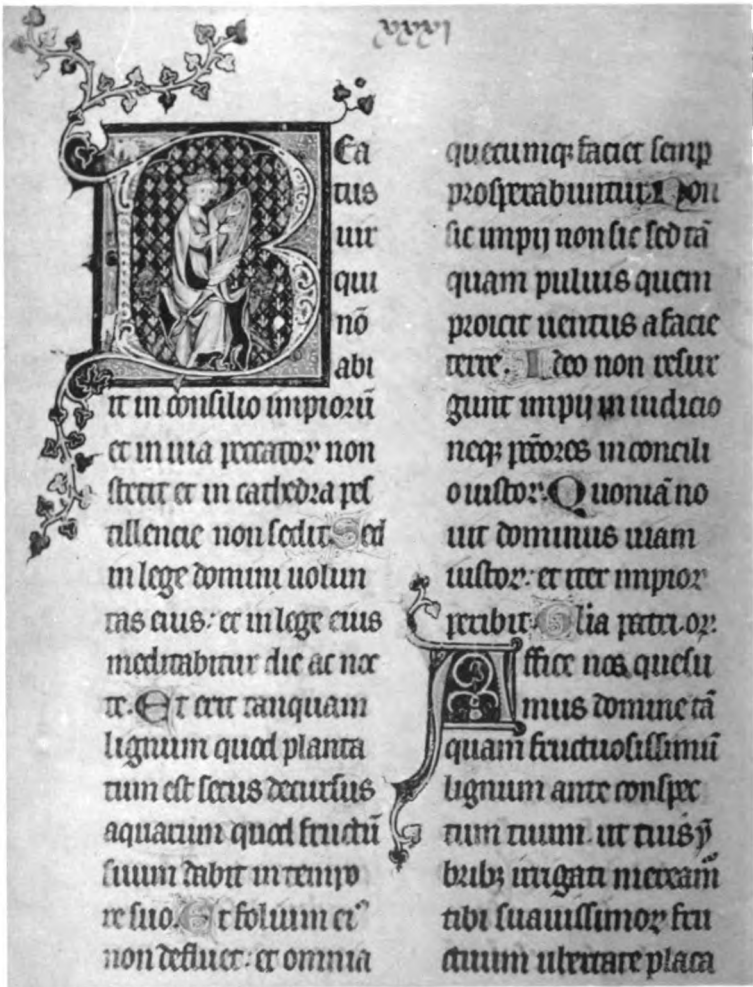 xxxvi
Bea
tus
uir
qui
nō
abi
it in consilio impiorū
et in uia peccatoꝝ non
stetit et in cathedra pes
tillencie non sedit. Sed
in lege domini uolun
tas eius: et in lege eius
meditabitur die ac noc
te. Et erit tanquam
lignum quod planta
tum est secus decursus
aquarum quod fructū
suum dabit in tempo
re suo. Et folium ei᷒
non defluet: et omnia
quecumqꝫ faciet semp
prosperabuntur. Non
sic impij non sic sed tā
quam puluis quem
proicit uentus a facie
terre. Ideo non resur
gunt impij in iudicio
neqꝫ pc̄ores in concili
o iustoꝝ. Quoniā no
uit dominus uiam
iustoꝝ: et iter impioꝝ
peribit. Glia patri. oꝝ.
Affice nos quesu
mus domine tā
quam fructuosissimū
lignum ante conspec
tum tuum. ut tuis ẏ
bribꝫ irrigati meream᷒
tibi suauissimoꝝ fru
ctuum ubertate placa